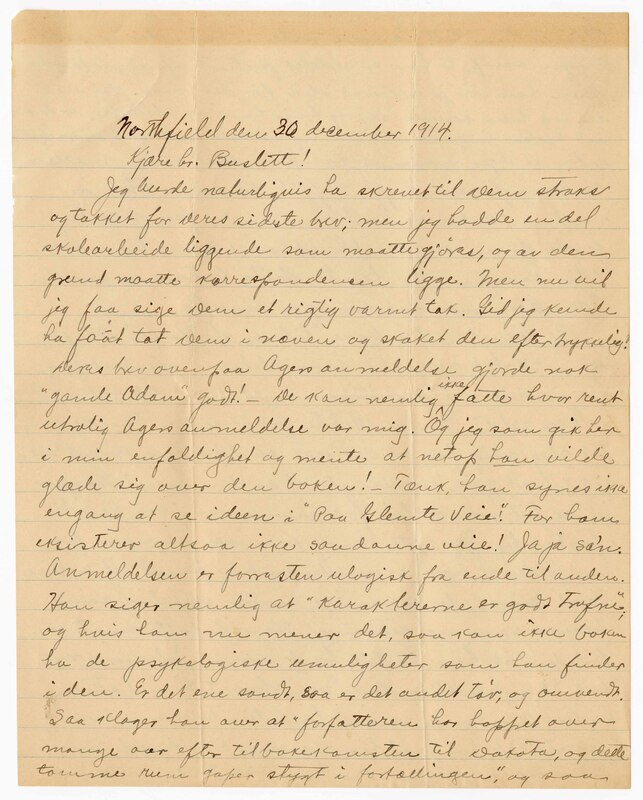 Northfield den 30 december 1914.
Kjære hr. Buslett!
Jeg burde naturligvis ha skrevet til Dem straks
og takket for Deres sidste brev; men jeg hadde en del
skolearbeide liggende som maatte gjöres, og av den
grund maatte korrespondensen ligge. Men nu vil
jeg faa sige Dem et rigtig varmt tak. Gid jeg kunde
ha faat tat Dem i næven og skaket den eftertrykkelig!
Deres brev ovenpaa Agers anmeldelse gjorde nok
"gamle Adam" godt! – De kan nemlig ikke fatte hvor rent
utrolig Agers anmeldelse var mig. Og jeg som gik her
i min enfoldighet og mente at netop han vilde
glæde sig over den boken! – Tænk, han synes ikke
engang at se ideen i "Paa Glemte Veie". For ham
eksisterer altsaa ikke saadanne veie! Ja ja sa'n.
Anmeldelsen er forresten ulogisk fra ende til anden.
Han siger nemlig at "karaktererne er godt trufne",
og hvis han nu mener det, saa kan ikke boken
ha de psykologiske umuligheter som han finder
i den. Er det ene sandt, saa er det andet töv, og omvendt.
Saa klager han over at "forfatteren har hoppet over
mange aar efter tilbakekomsten til Dakota, og dette
tomme rum gaper stygt i fortællingen", og saa